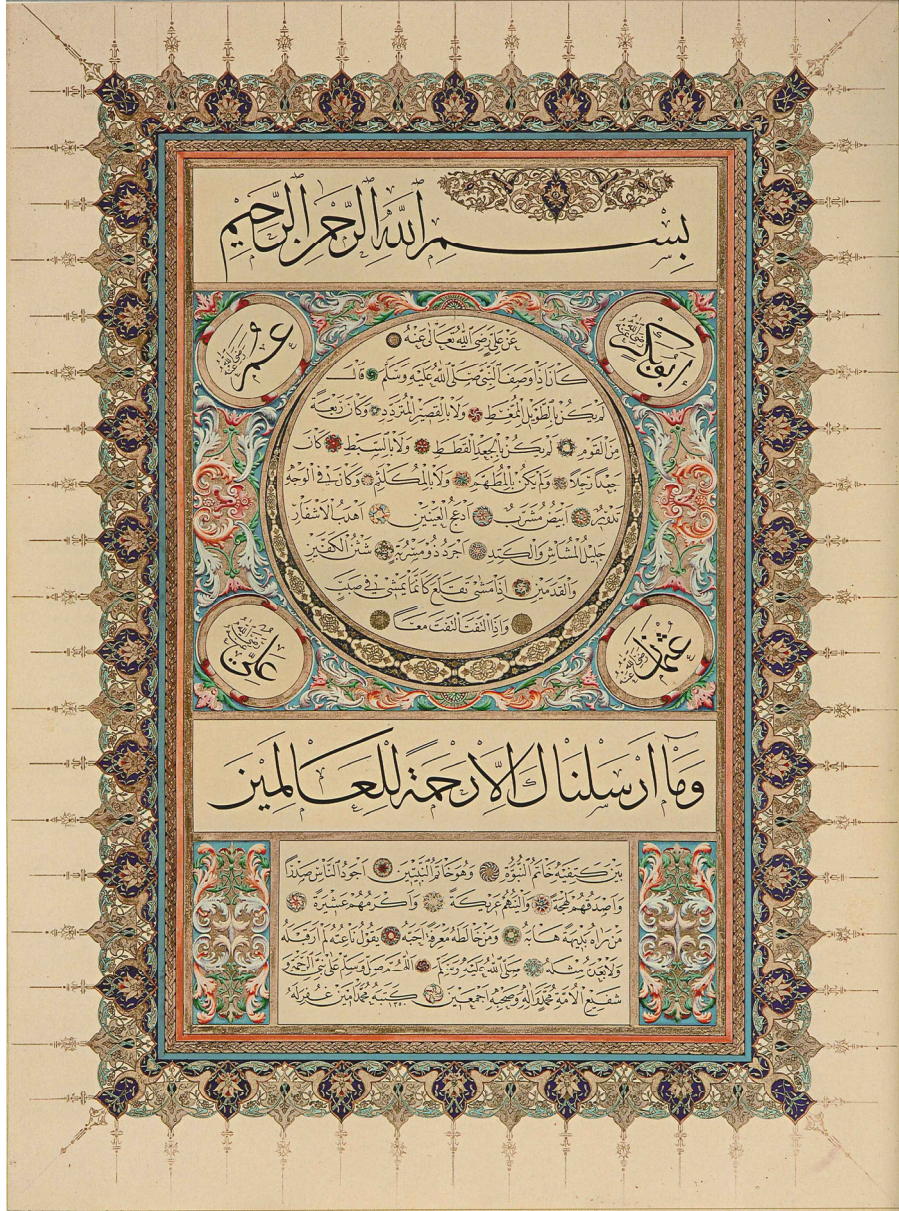 بسم الله الرحمن الرحيم
ابو بكر رضي الله عنه
عمر رضي الله عنه
عن علي رضي الله تعالى عنه
كان اذا وصف النبي صلى الله عليه وسلم قال
لم يكن بالطويل الممغط ولا بالقصير المتردد وكان ربعة
من القوم لم يكن بالجعد القطط ولا بالسبط كان
جعدا رجلا ولم يكن بالمطهم ولا بالمكلثم وكان في الوجه
تدوير ابيض مشرب ادعج العينين اهدب الاشفار
جليل المشاش والكتد اجرد ذو مسربة شثن الكفين
والقدمين اذا مشى تقلع كانما يمشي في صبب
واذا التفت التفت معا
عثمان رضي الله عنه
علي رضي الله عنه
وما ارسلناك الا رحمة للعالمين
بين كتفيه خاتم النبوة وهو خاتم النبيين اجود الناس صدرا
واصدقهم لهجة والينهم عريكة واكرمهم عشيرة
من راه بديهة هابه ومن خالطه معرفة احبه يقول ناعته لم ار قبله
ولا بعده مثله صلى الله عليه وسلم اللهم صل وسلم على نبي الرحمة و
شفيع الامة محمد واله وصحبه اجمعين كتبه محمد امين غفر له